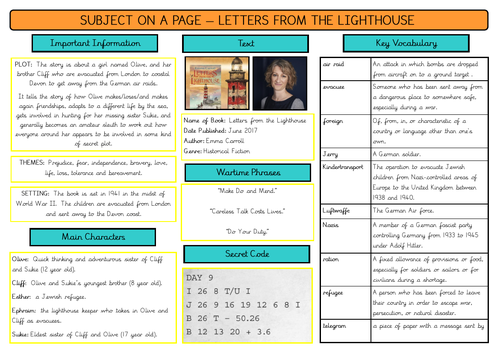 SUBJECT ON A PAGE – LETTERS FROM THE LIGHTHOUSE
Important Information
PLOT: The story is about a girl named Olive, and her
brother Cliff who are evacuated from London to coastal
Devon to get away from the German air raids.
It tells the story of how Olive makes/loses/and makes
again friendships, adapts to a different life by the sea,
gets involved in hunting for her missing sister Sukie, and
generally becomes an amateur sleuth to work out how
everyone around her appears to be involved in some kind
of secret plot.
THEMES: Prejudice, fear, independence, bravery, love,
life, loss, tolerance and bereavement.
SETTING: The book is set in 1941 in the midst of
World War II. The children are evacuated from London
and sent away to the Devon coast.
Main Characters
Olive: Quick thinking and adventurous sister of Cliff
and Sukie (12 year old).
Cliff: Olive and Sukie's youngest brother (8 year old).
Esther: a Jewish refugee.
Ephraim: the lighthouse keeper who takes in Olive and
Cliff as evacuees.
Sukie: Eldest sister of Cliff and Olive (17 year old).
Text
Name of Book: Letters from the Lighthouse
Date Published: June 2017
Author: Emma Carroll
Genre: Historical Fiction
Wartime Phrases
"Make Do and Mend."
"Careless Talk Costs Lives."
"Do Your Duty."
Secret Code
DAY 9
I 26 8 T/U I
J 26 9 16 19 12 6 8 I
B 26 T – 50.26
B 12 13 20 + 3.6
Key Vocabulary
air raid An attack in which bombs are dropped
from aircraft on to a ground target.
evacuee Someone who has been sent away from
a dangerous place to somewhere safe,
especially during a war.
foreign Of, from, in, or characteristic of a
country or language other than one's
own.
Jerry A German soldier.
Kindertransport The operation to evacuate Jewish
children from Nazi-controlled areas of
Europe to the United Kingdom between
1938 and 1940.
Luftwaffe The German Air force.
Nazis A member of a German fascist party
controlling Germany from 1933 to 1945
under Adolf Hitler.
ration A fixed allowance of provisions or food,
especially for soldiers or sailors or for
civilians during a shortage.
refugee A person who has been forced to leave
their country in order to escape war,
persecution, or natural disaster.
telegram a piece of paper with a message sent by